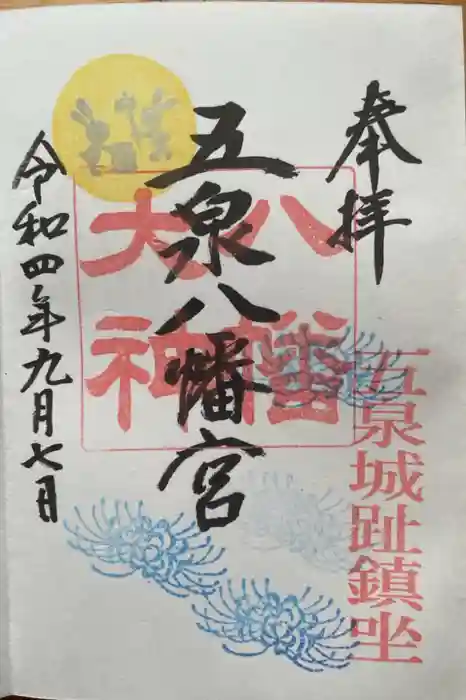 奉拝
五泉城趾鎮坐
八幡
大神
五泉八幡宮
令和四年九月七日